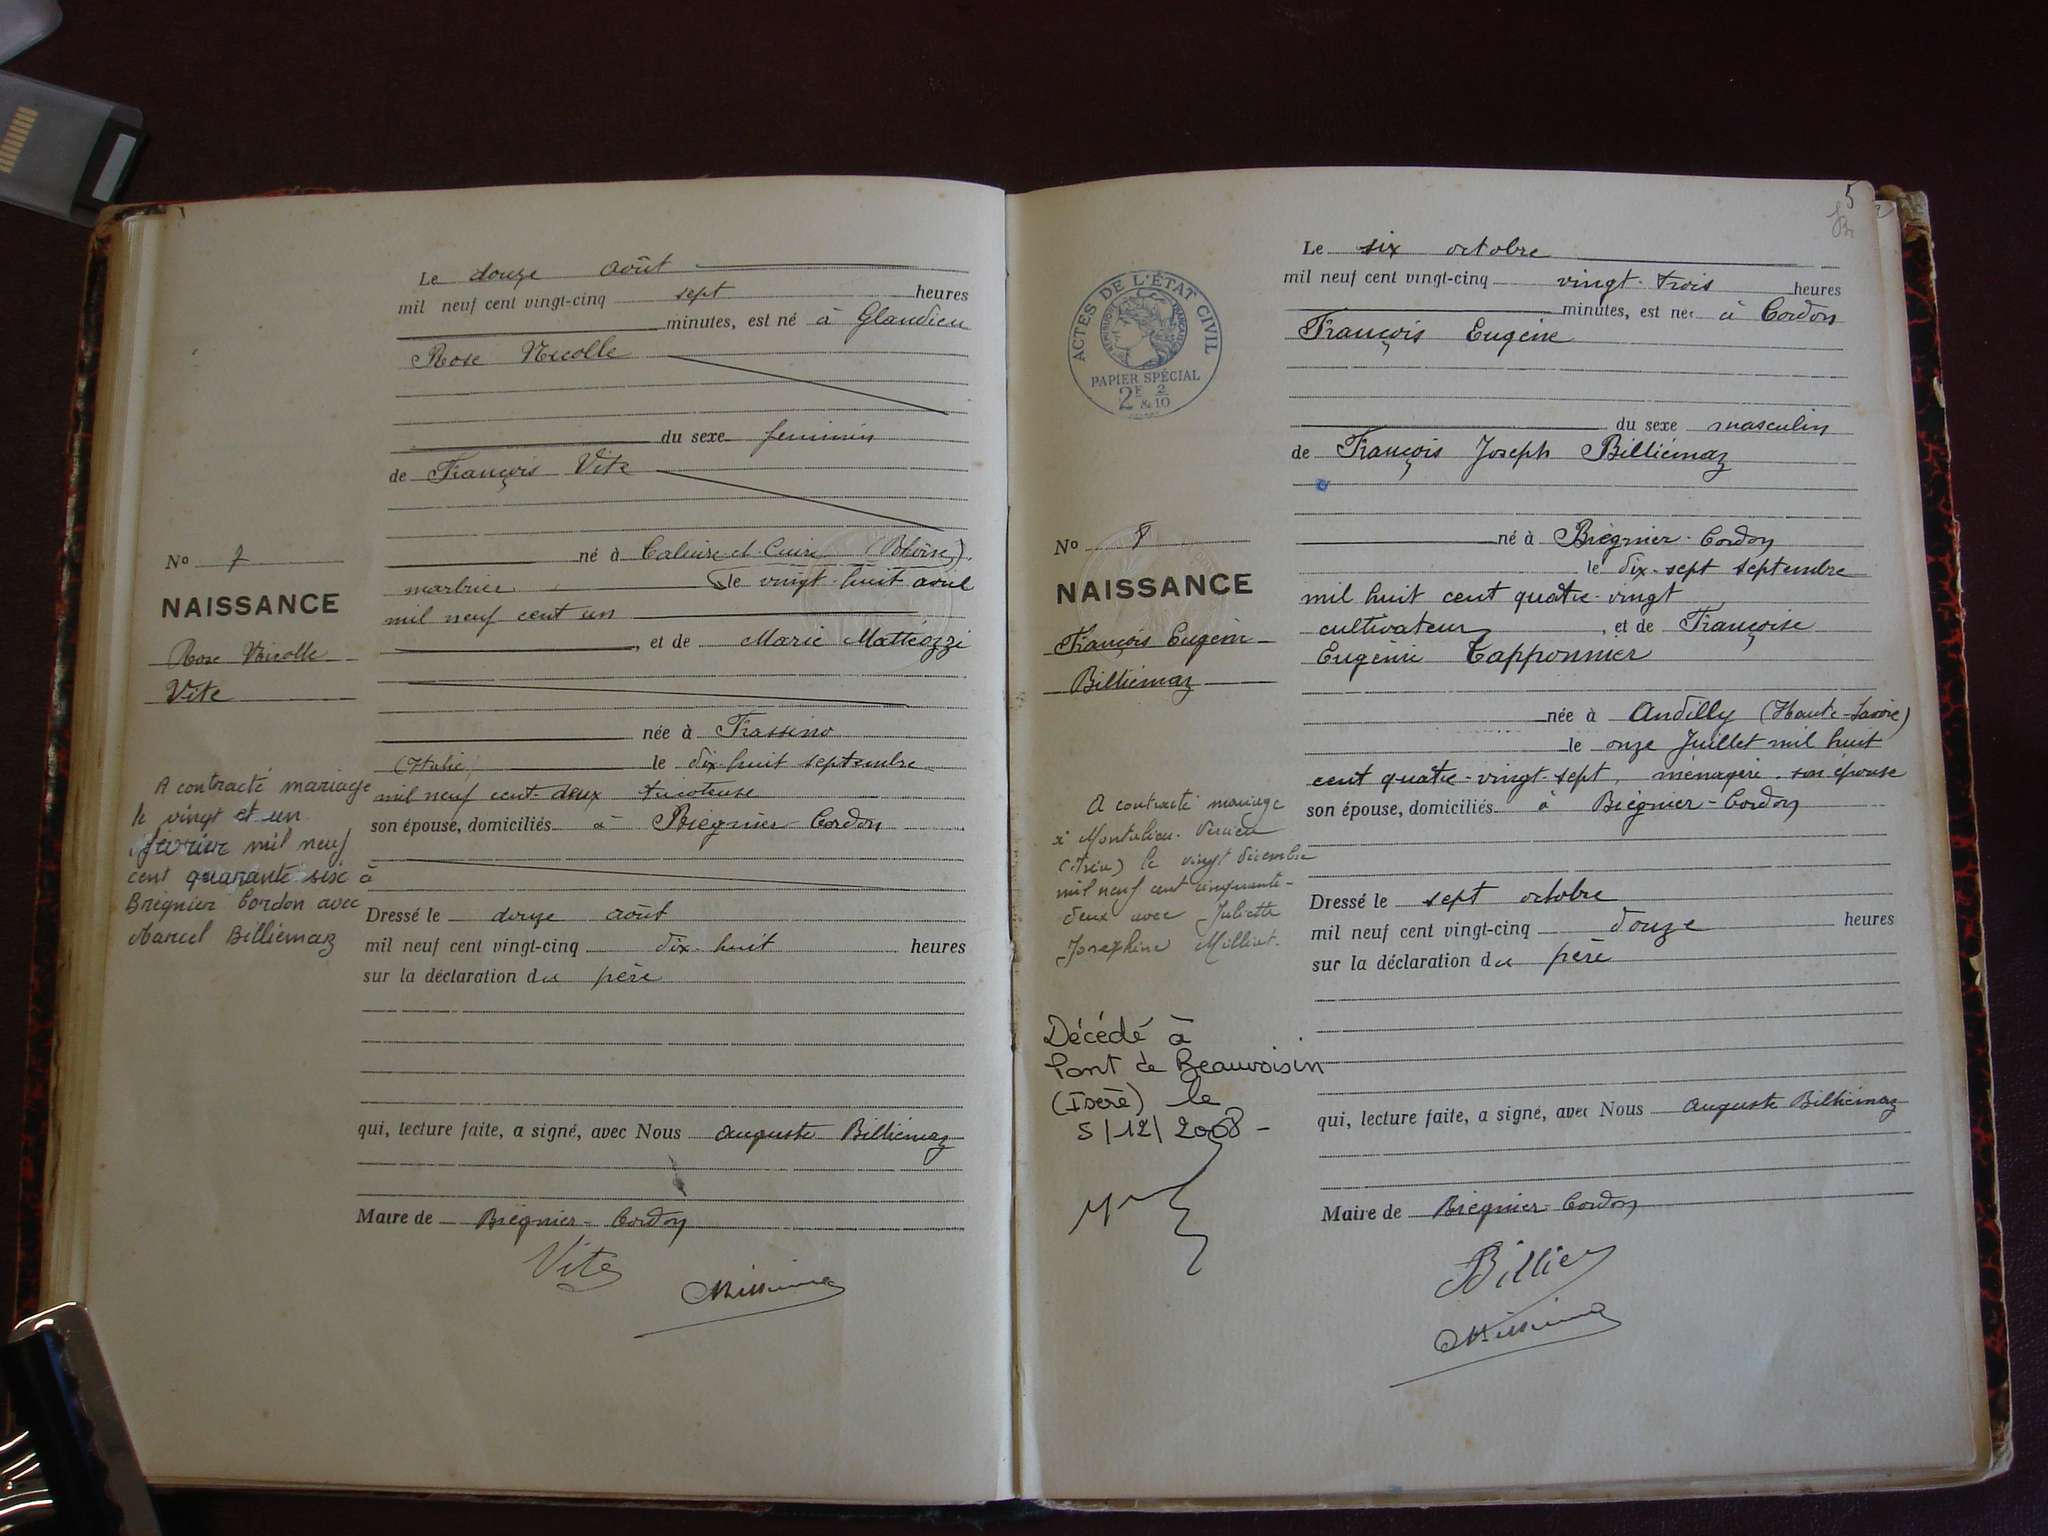 Le douze août
mil neuf cent vingt-cinq sept heures
minutes, est né à Glandieu
Rose Nicolle
du sexe feminin
de François Vite
né à Caluire-et-Cuire (Rhône)
marbrier le vingt-huit avril
mil neuf cent un
, et de Marie Mattéozzi
née à Frassino
(Italie) le dix-huit septembre
mil neuf cent deux tricoteuse
son épouse, domiciliés à Brégnier-Cordon
Dressé le douze août
mil neuf cent vingt-cinq dix-huit heures
sur la déclaration du père
qui, lecture faite, a signé, avec Nous Auguste Billiémaz
Maire de Brégnier-Cordon
Vite
No 7
NAISSANCE
Rose Nicolle
Vite
A contracté mariage
le vingt et un
février mil neuf
cent quarante six à
Brégnier Cordon avec
Marcel Billiemaz
5
ACTES DE L'ÉTAT CIVIL
RÉPUBLIQUE FRANÇAISE
PAPIER SPÉCIAL
2F & 2/10
Le six octobre
mil neuf cent vingt-cinq vingt-trois heures
minutes, est né à Cordon
François Eugène
du sexe masculin
de François Joseph Billiémaz
né à Brégnier-Cordon
le dix-sept septembre
mil huit cent quatre-vingt
cultivateur, et de Françoise
Eugénie Tapponnier
née à Andilly (Haute-Savoie)
le onze Juillet mil huit
cent quatre-vingt-sept, ménagère, son épouse
son épouse, domiciliés à Brégnier-Cordon
Dressé le sept octobre
mil neuf cent vingt-cinq douze heures
sur la déclaration du père
qui, lecture faite, a signé, avec Nous Auguste Billiémaz
Maire de Brégnier-Cordon
No 8
NAISSANCE
François Eugène
Billiémaz
A contracté mariage
à Montalieu-Vercieu
(Isère) le vingt décembre
mil neuf cent cinquante-
deux avec Juliette
Joséphine Milliat.
Décédé à
Pont de Beauvoisin
(Isère) le
5/12/2008 -